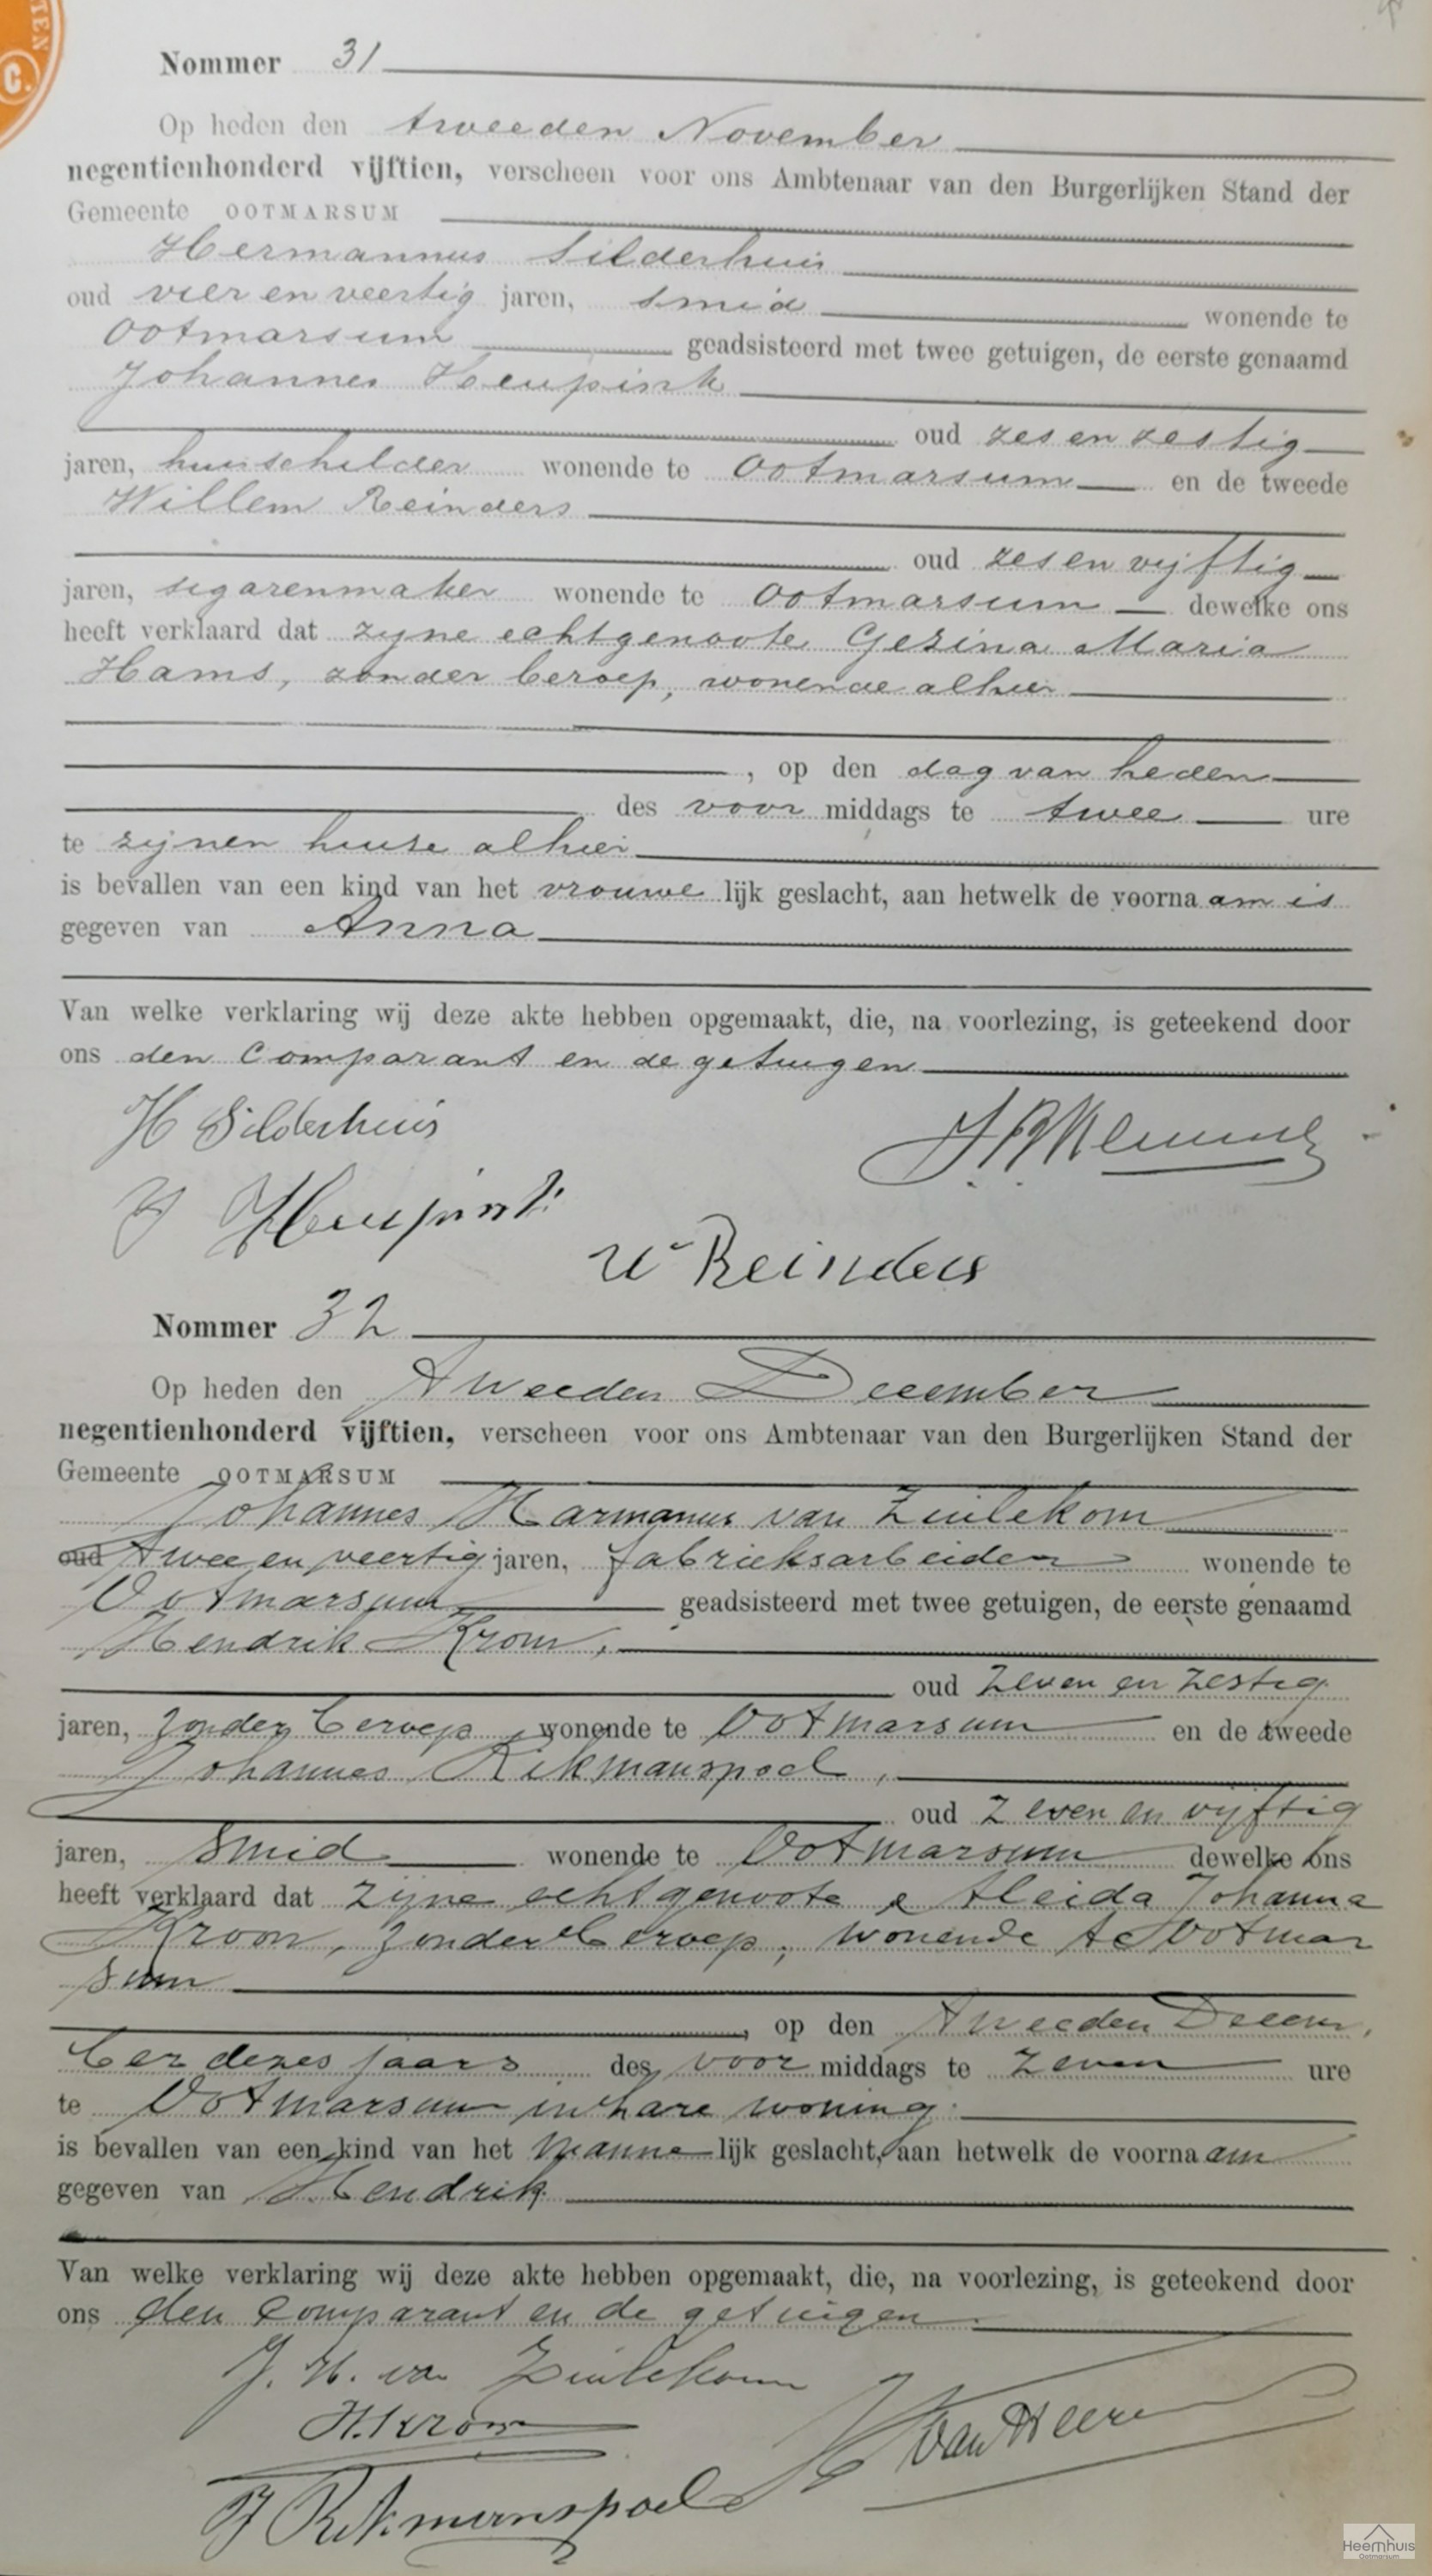 TEN
C.
Nommer 31
Op heden den tweeden November
negentienhonderd vijftien, verscheen voor ons Ambtenaar van den Burgerlijken Stand der
Gemeente OOTMARSUM
Hermannus Silderhuis
oud vier en veertig jaren, smid wonende te
Ootmarsum geadsisteerd met twee getuigen, de eerste genaamd
Johannes Heupink
oud zes en zestig
jaren, huisschilder wonende te Ootmarsum en de tweede
Willem Reinders
oud zes en vijftig
jaren, sigarenmaker wonende te Ootmarsum dewelke ons
heeft verklaard dat zijne echtgenoote Gezina Maria
Hams, zonder beroep, wonende alhier
, op den dag van heden
des voor middags te twee ure
te zijnen huise alhier
is bevallen van een kind van het vrouwe lijk geslacht, aan hetwelk de voorna am is
gegeven van Anna
Van welke verklaring wij deze akte hebben opgemaakt, die, na voorlezing, is geteekend door
ons den comparant en de getuigen
H Silderhuis
J Heupink
W Reinders
Nommer 32
Op heden den Tweeden December
negentienhonderd vijftien, verscheen voor ons Ambtenaar van den Burgerlijken Stand der
Gemeente OOTMARSUM
Johannes Harmanus van Zuilekom
oud twee en veertig jaren, fabrieksarbeider wonende te
Ootmarsum geadsisteerd met twee getuigen, de eerste genaamd
Hendrik Krom,
oud zeven en zestig
jaren, zonder beroep, wonende te Ootmarsum en de tweede
Johannes Rikmanspoel,
oud zeven en vijftig
jaren, smid wonende te Ootmarsum dewelke ons
heeft verklaard dat zijne echtgenoote Aleida Johanna
Kroon, zonder beroep, wonende te Ootmar
sum
, op den Tweeden Decem,
ber dezes jaars des voor middags te zeven ure
te Ootmarsum in hare woning.
is bevallen van een kind van het manne lijk geslacht, aan hetwelk de voorna am
gegeven van Hendrik
Van welke verklaring wij deze akte hebben opgemaakt, die, na voorlezing, is geteekend door
ons den comparant en de getuigen
J. H. van Zuilekom
H. Krom
van Heere
J Rikmanspoel
Heemhuis
Ootmarsum